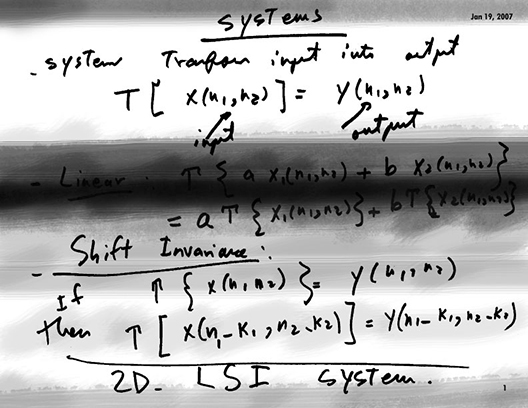 systems
Jan 19, 2007
- system Transform input into output
T [ x(n₁,n₂) ] = y(n₁,n₂)
input output
- Linear : T { a x₁(n₁,n₂) + b x₂(n₁,n₂) }
= a T { x₁(n₁,n₂) } + b T { x₂(n₁,n₂) }
- Shift Invariance :
If T { x(n₁,n₂) } = y(n₁,n₂)
then T [ x(n₁-k₁,n₂-k₂) ] = y(n₁-k₁,n₂-k₂)
2D- LSI system.
1